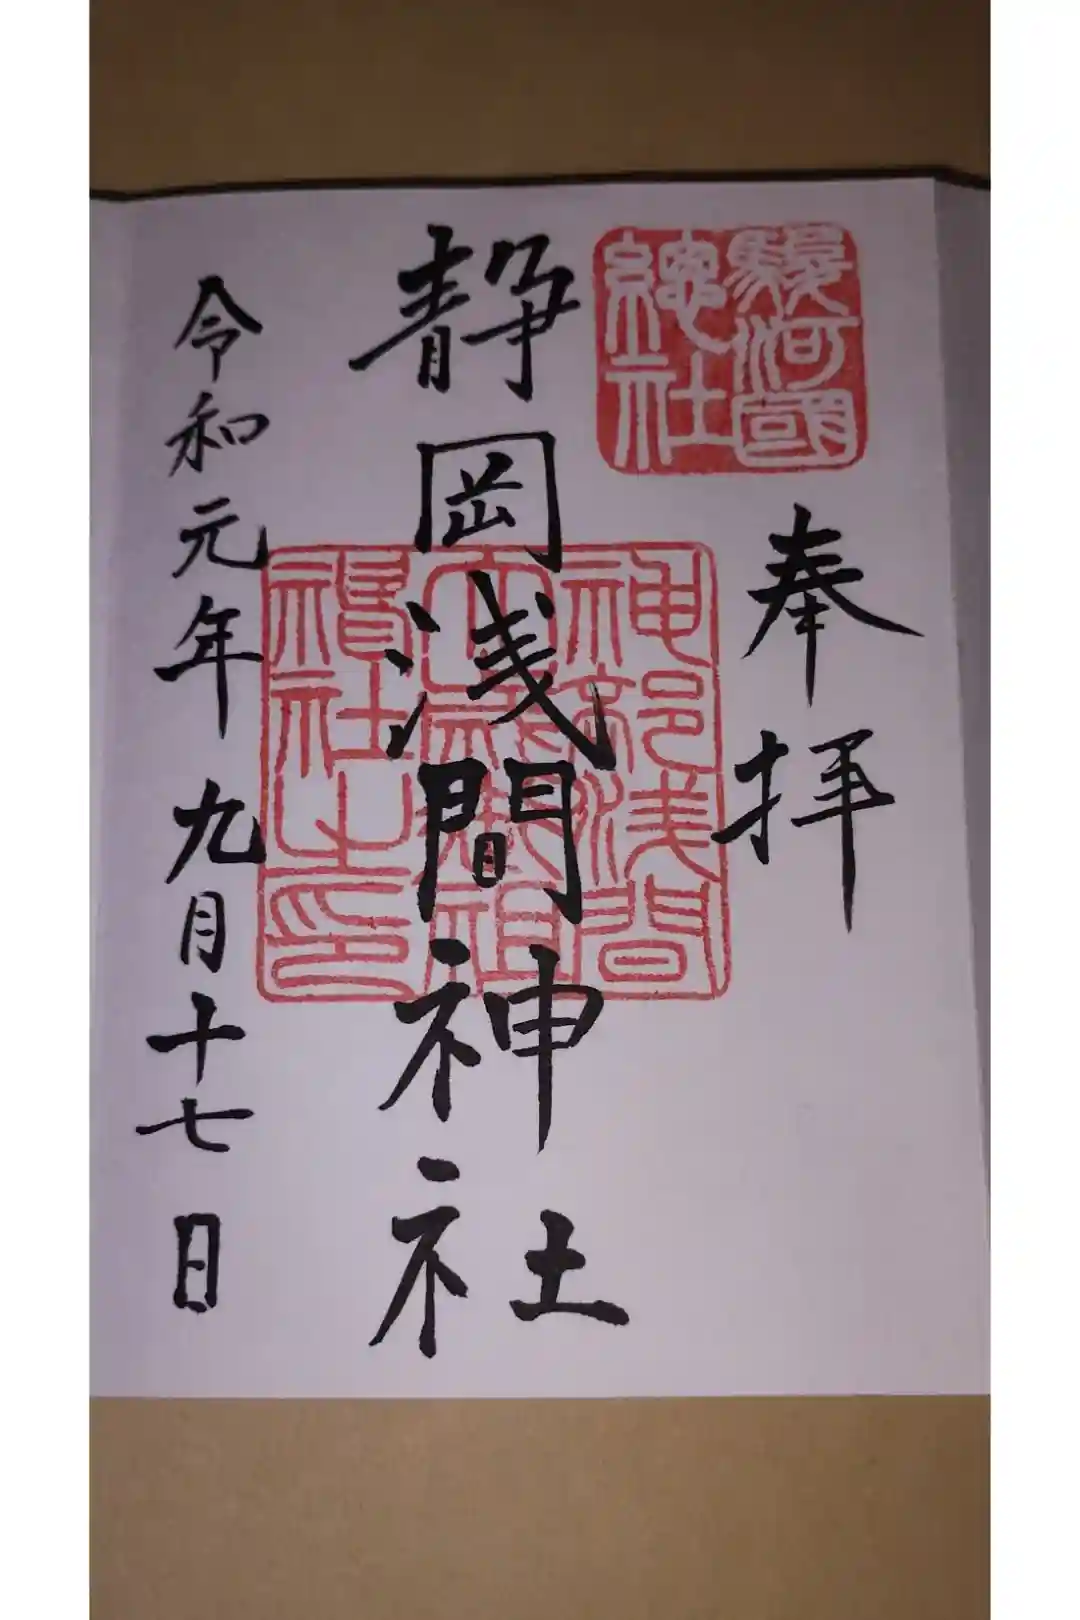 駿河國
總社
奉拝
静岡浅間神社
神部浅間
大歳御祖
神社之印
令和元年九月十七日